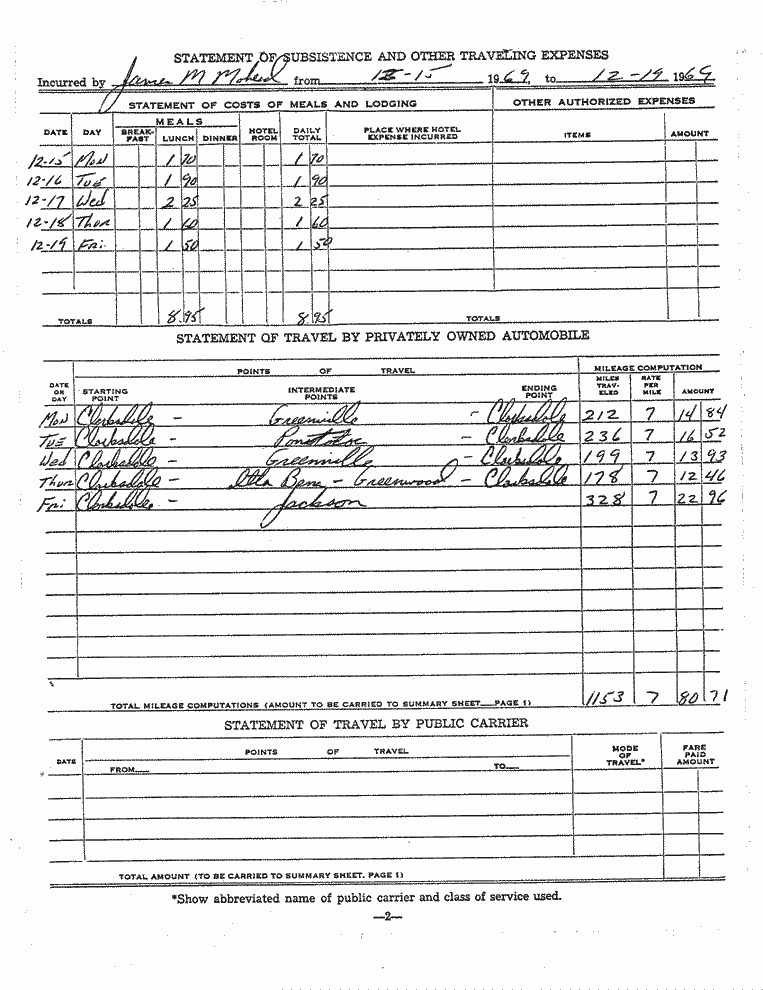 STATEMENT OF SUBSISTENCE AND OTHER TRAVELING EXPENSES
Incurred by James M from 12-15 1969, to 12-19 1969
STATEMENT OF COSTS OF MEALS AND LODGING OTHER AUTHORIZED EXPENSES
DATE DAY MEALS BREAK-FAST LUNCH DINNER HOTEL ROOM DAILY TOTAL PLACE WHERE HOTEL EXPENSE INCURRED ITEMS AMOUNT
12-15 Mon 1 70 1 70
12-16 Tue 1 90 1 90
12-17 Wed 2 25 2 25
12-18 Thur 1 60 1 60
12-19 Fri. 1 50 1 50
TOTALS 8.95 8 95 TOTALS
STATEMENT OF TRAVEL BY PRIVATELY OWNED AUTOMOBILE
POINTS OF TRAVEL MILEAGE COMPUTATION
DATE OR DAY STARTING POINT INTERMEDIATE POINTS ENDING POINT MILES TRAV-ELED RATE PER MILE AMOUNT
Mon Clarksdale - Greenville - Clarksdale 212 7 14 84
Tue Clarksdale - Pontotoc - Clarksdale 236 7 16 52
Wed Clarksdale - Greenville - Clarksdale 199 7 13 93
Thur Clarksdale - Itta Bena - Greenwood - Clarksdale 178 7 12 46
Fri Clarksdale - Jackson 328 7 22 96
TOTAL MILEAGE COMPUTATIONS (AMOUNT TO BE CARRIED TO SUMMARY SHEET—PAGE 1) 1153 7 80 71
STATEMENT OF TRAVEL BY PUBLIC CARRIER
DATE POINTS OF TRAVEL MODE OF TRAVEL* FARE PAID AMOUNT
FROM— TO—
TOTAL AMOUNT (TO BE CARRIED TO SUMMARY SHEET, PAGE 1)
*Show abbreviated name of public carrier and class of service used.
—2—